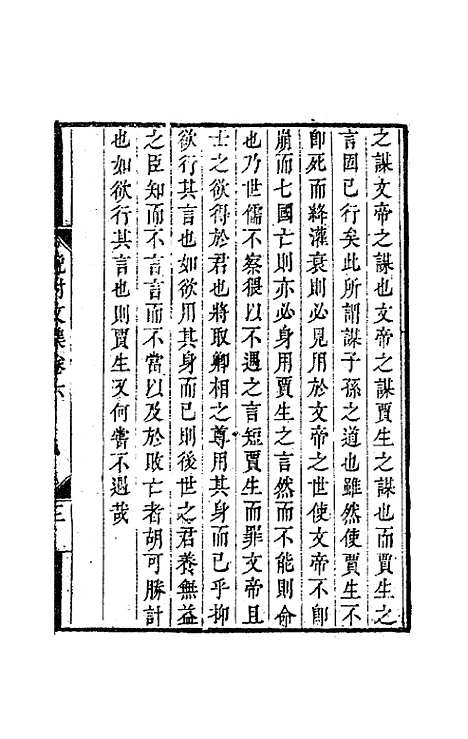 之謀文帝之謀也文帝之謀賈生之謀也而賈生之
言固已行矣此所謂謀子孫之道也雖然使賈生不
卽死而絳灌衰則必見用於文帝之世使文帝不卽
崩而七國亡則亦必身用賈生之言然而不能則命
也乃世儒不察猥以不遇之言短賈生而罪文帝且
士之欲得於君也將取卿相之尊用其身而已乎抑
欲行其言也如欲用其身而已則後世之君養無益
之臣知而不言言而不當以及於敗亡者胡可勝計
也如欲行其言也則賈生又何嘗不遇哉
文集卷六
三